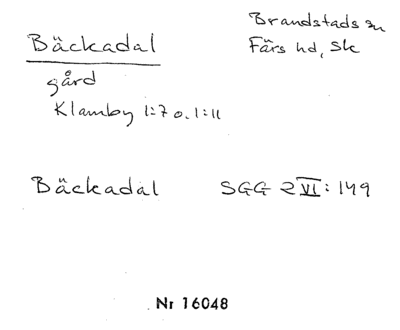 Bäckadal
Brandstads sn
Färs hd, Sk
gård
Klamby 1:7 o. 1:11
Bäckadal SGG 2 VI: 149
Nr 16048